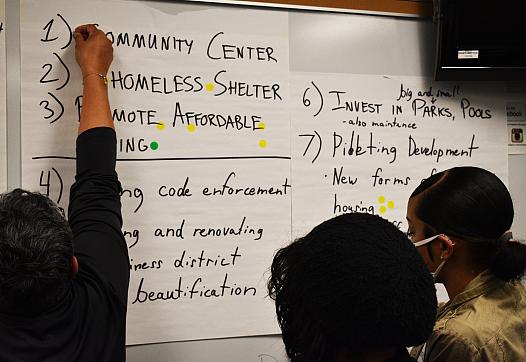 1) COMMUNITY CENTER
2) HOMELESS SHELTER
3) AFFORDABLE
4) code enforcement
and renovating
district
beautification
big and small
6) INVEST IN PARKS, POOLS
- also maintance
7) Development
• New forms
housing